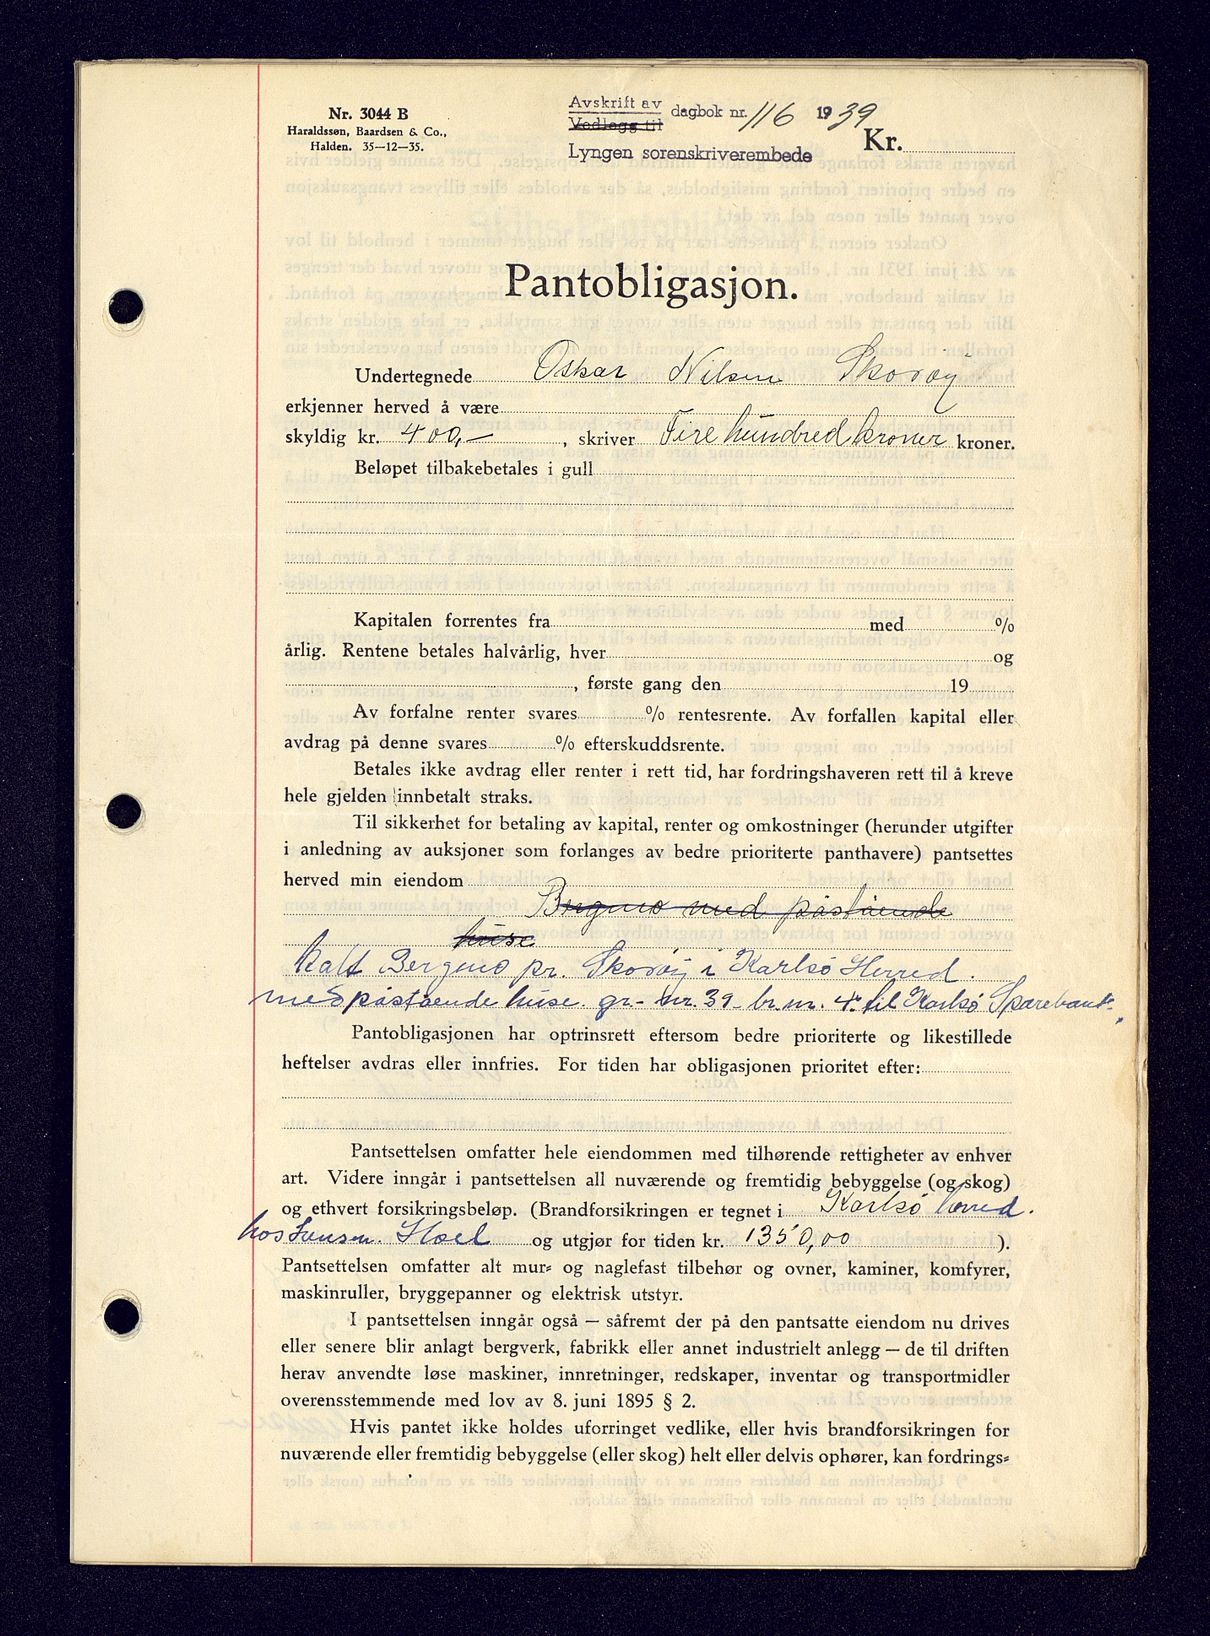 Nr. 3044 B
Haraldssøn, Baardsen & Co.,
Halden. 35—12—35.
Avskrift av
Vedlegg til dagbok nr. 116 1939
Lyngen sorenskriverembede
Kr.
Pantobligasjon.
Undertegnede Oskar Nilsen Skorøy
erkjenner herved å være
skyldig kr. 400,- , skriver Fire hundred kroner kroner.
Beløpet tilbakebetales i gull
Kapitalen forrentes fra med %
årlig. Rentene betales halvårlig, hver og
, første gang den 19
Av forfalne renter svares % rentesrente. Av forfallen kapital eller
avdrag på denne svares % efterskuddsrente.
Betales ikke avdrag eller renter i rett tid, har fordringshaveren rett til å kreve
hele gjelden innbetalt straks.
Til sikkerhet for betaling av kapital, renter og omkostninger (herunder utgifter
i anledning av auksjoner som forlanges av bedre prioriterte panthavere) pantsettes
herved min eiendom
Bergmo med påstående
huse
kalt Bergmo pr. Skorøy i Karlsö Herred.
med påstående huse. gr.- nr. 39 - br. nr. 4. til Karlsö Sparebank.
Pantobligasjonen har optrinsrett eftersom bedre prioriterte og likestillede
heftelser avdras eller innfries. For tiden har obligasjonen prioritet efter:
Pantsettelsen omfatter hele eiendommen med tilhørende rettigheter av enhver
art. Videre inngår i pantsettelsen all nuværende og fremtidig bebyggelse (og skog)
og ethvert forsikringsbeløp. (Brandforsikringen er tegnet i Karlsö herred.
hos Hoel og utgjør for tiden kr. 1350,00 ).
Pantsettelsen omfatter alt mur- og naglefast tilbehør og ovner, kaminer, komfyrer,
maskinruller, bryggepanner og elektrisk utstyr.
I pantsettelsen inngår også — såfremt der på den pantsatte eiendom nu drives
eller senere blir anlagt bergverk, fabrikk eller annet industrielt anlegg — de til driften
herav anvendte løse maskiner, innretninger, redskaper, inventar og transportmidler
overensstemmende med lov av 8. juni 1895 § 2.
Hvis pantet ikke holdes uforringet vedlike, eller hvis brandforsikringen for
nuværende eller fremtidig bebyggelse (eller skog) helt eller delvis ophører, kan fordrings-